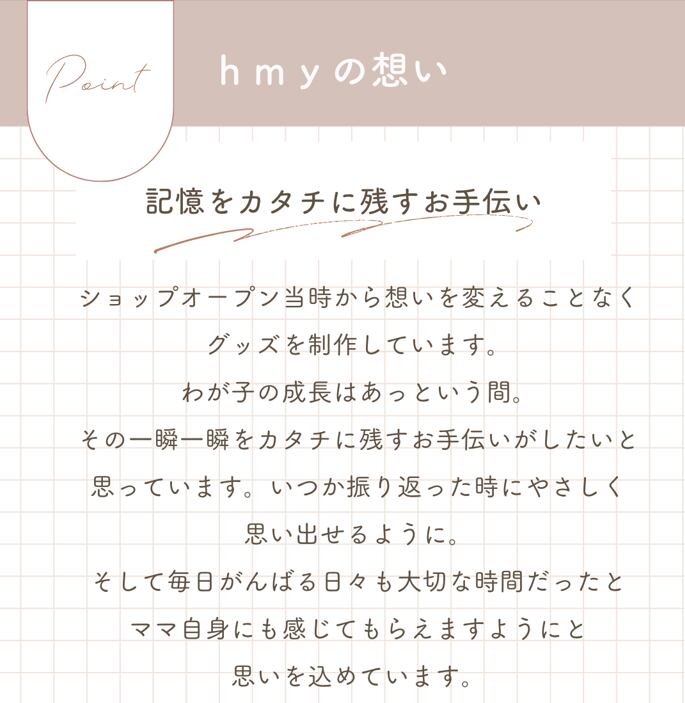 Point
ｈｍｙの想い
記憶をカタチに残すお手伝い
ショップオープン当時から想いを変えることなく
グッズを制作しています。
わが子の成長はあっという間。
その一瞬一瞬をカタチに残すお手伝いがしたいと
思っています。いつか振り返った時にやさしく
思い出せるように。
そして毎日がんばる日々も大切な時間だったと
ママ自身にも感じてもらえますようにと
思いを込めています。